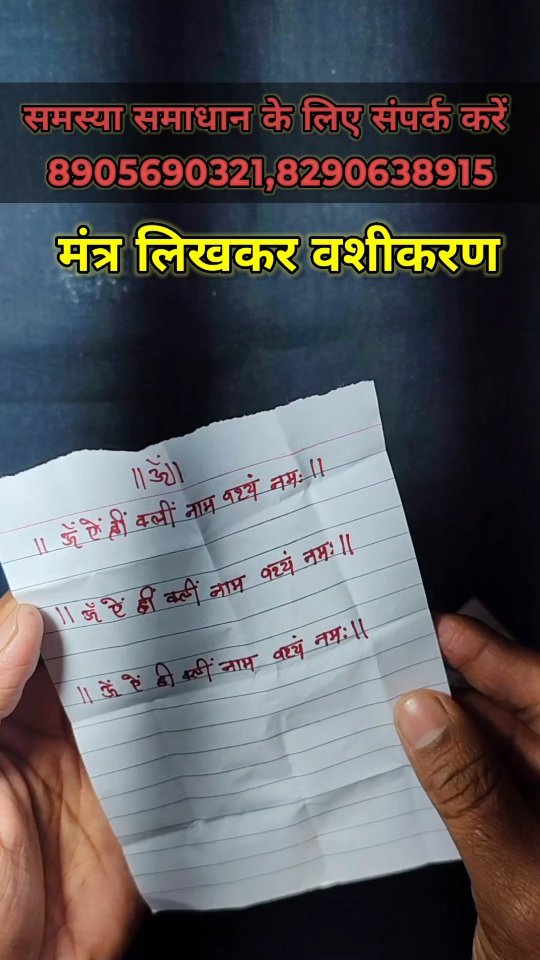 समस्या समाधान के लिए संपर्क करें
8905690321,8290638915
मंत्र लिखकर वशीकरण
||ॐ||
|| ॐ ऐं ह्रीं क्लीं नाम वश्यं नमः ||
|| ॐ ऐं ह्री क्लीं नाम वश्यं नमः ||
|| ॐ ऐं ह्री क्लीं नाम वश्यं नमः ||